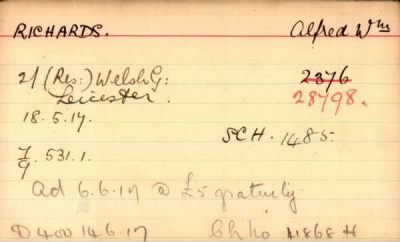 RICHARDS. Alfred Wm
2/(Res:) Welsh G: 2376
Leicester. 28798.
18.5.17.
SCH. 1485.
7/9. 531.1.
Ad 6.6.17 @ £5 gratuity
D 400 14.6.17 Ch No 41868 H